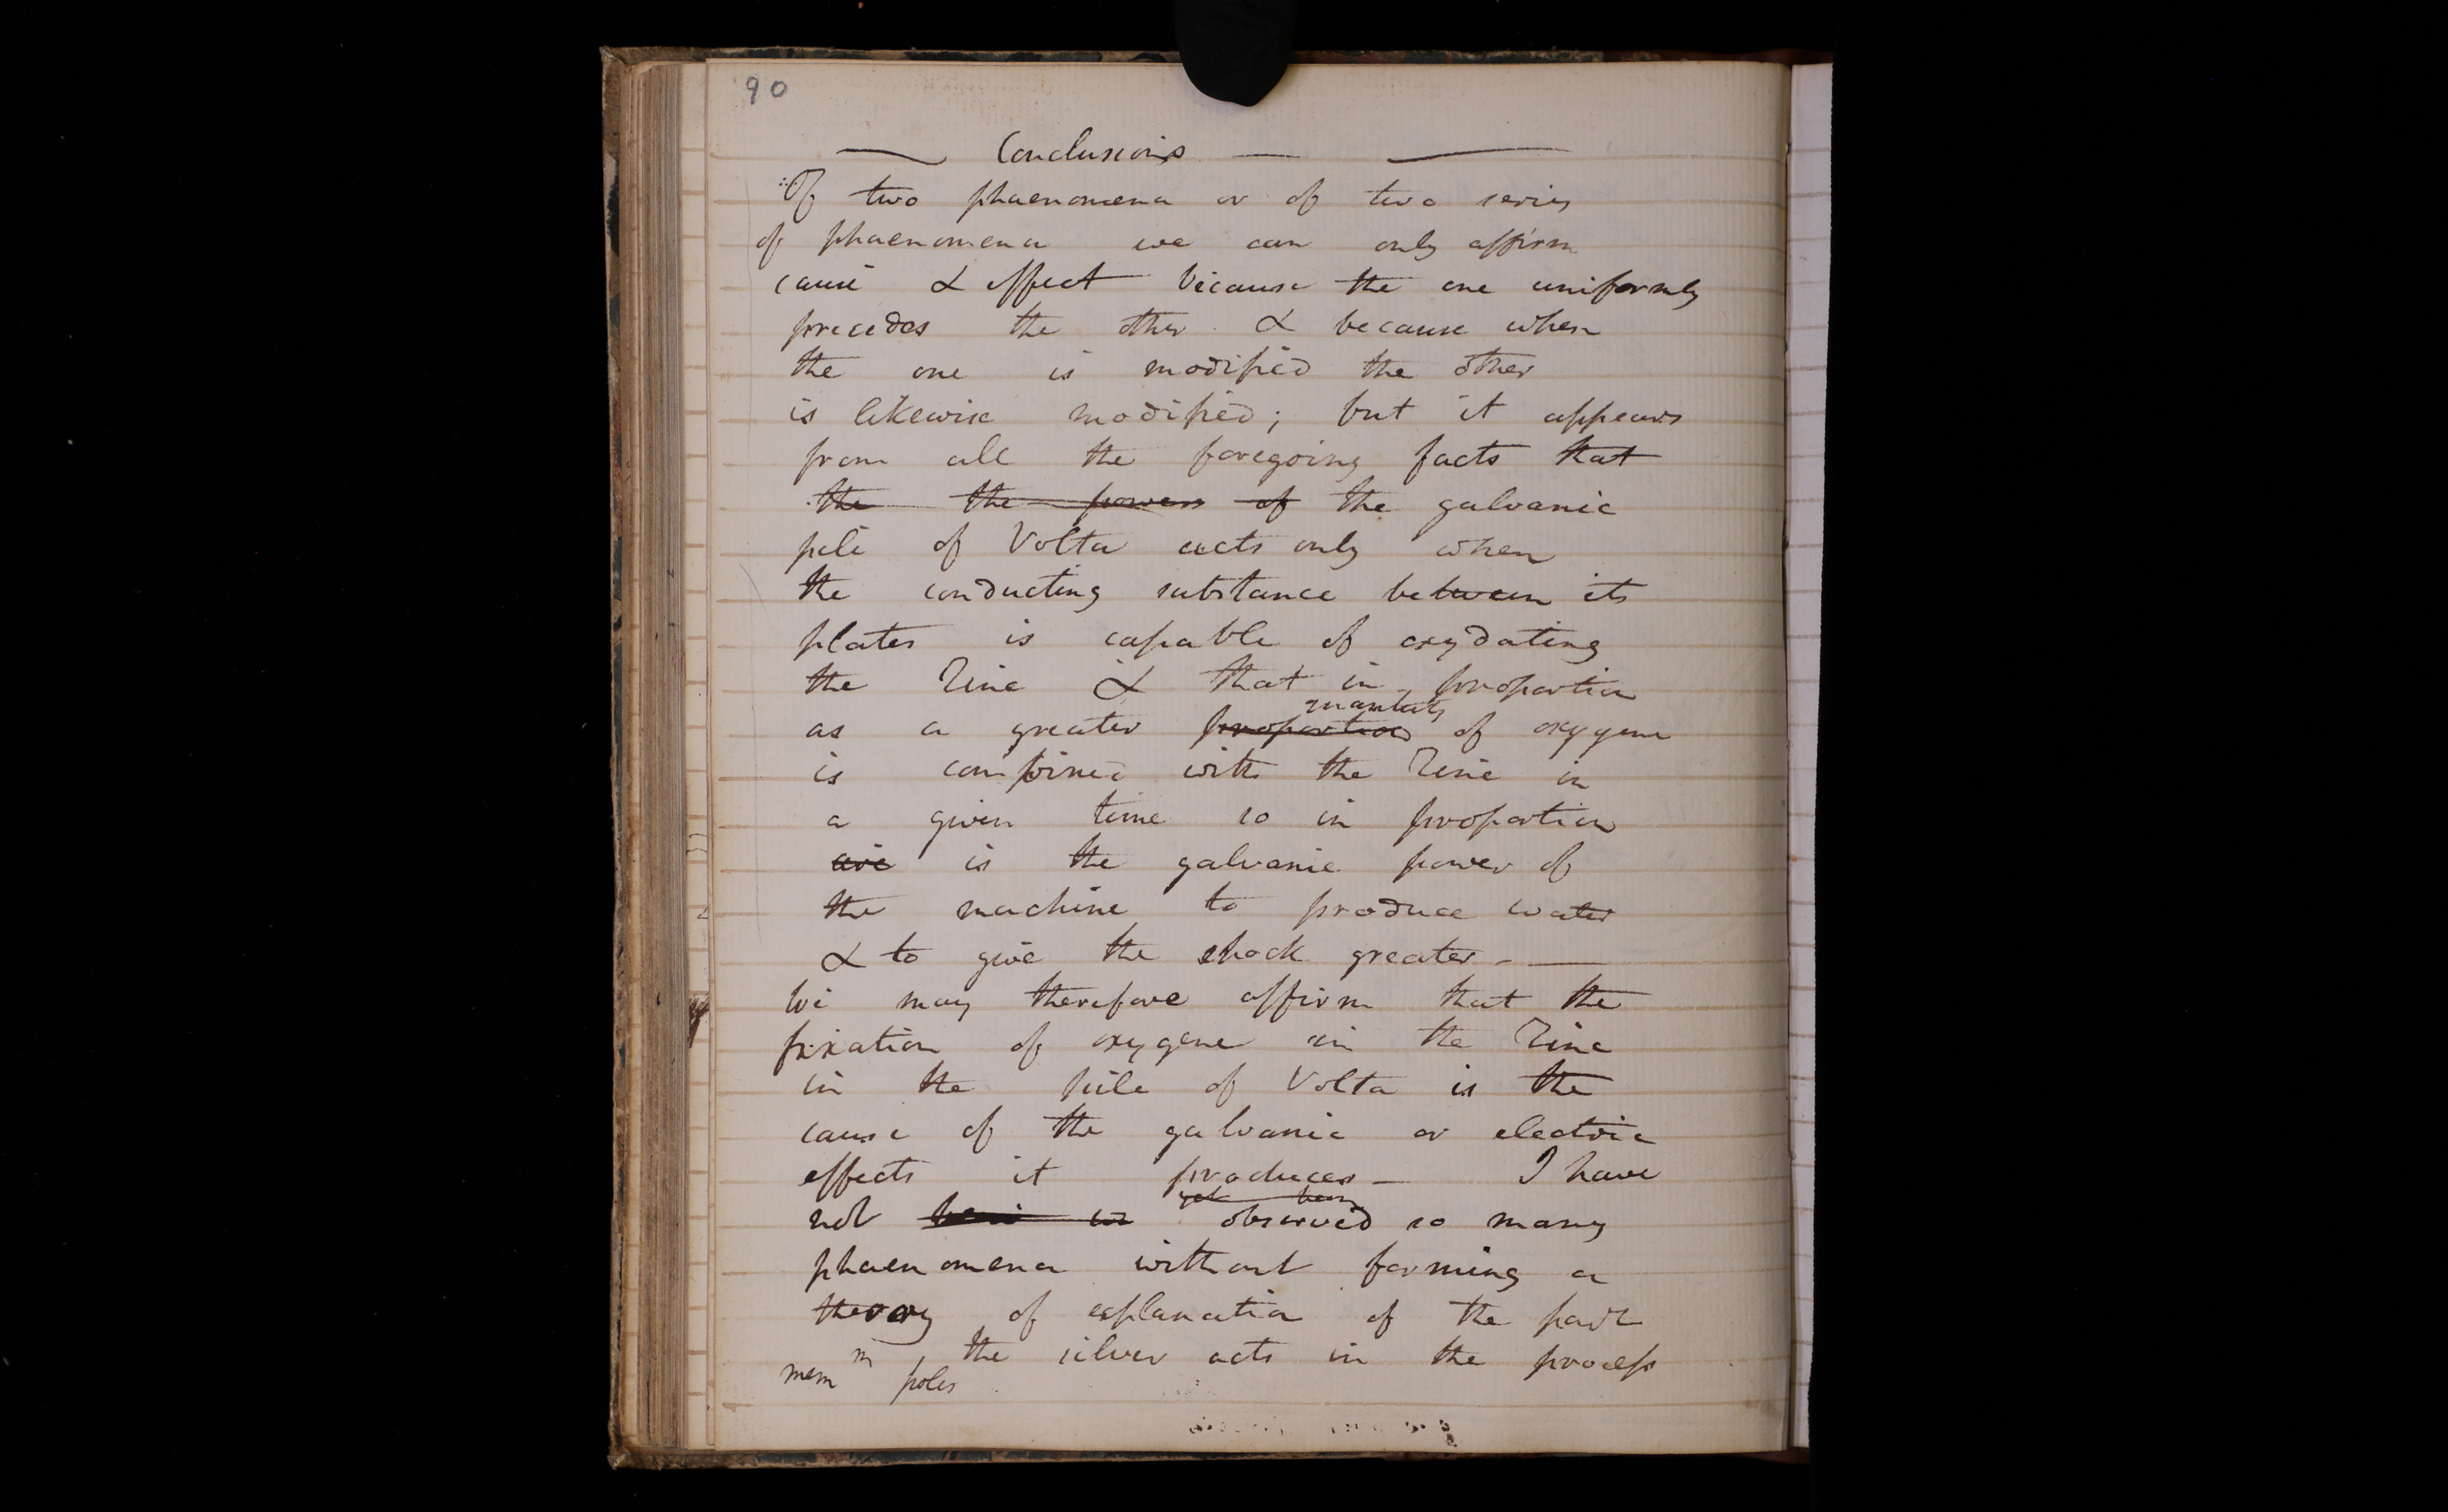 90
Conclusions
Of two phaenomena or of two series
of phaenomena we can only affirm
cause & effect because the one uniformly
precedes the other & because when
the one is modified the other
is likewise modified; but it appears
from all the foregoing facts that
the the powers of the galvanic
pile of Volta acts only when
the conducting substance between its
plates is capable of oxydating
the zinc & that in proportion
quantity
as a greater proportion of oxygene
is combined with the zinc in
a given time so in proportion
are is the galvanic power of
the machine to produce water
& to give the shock greater. —
We may therefore affirm that the
fixation of oxygene in the zinc
in the pile of Volta is the
cause of the galvanic or electric
effects it produces — I have
yet been
not observed so many
phaenomena without forming a
theory of explanation of the part
the silver acts in the process
mem m poles